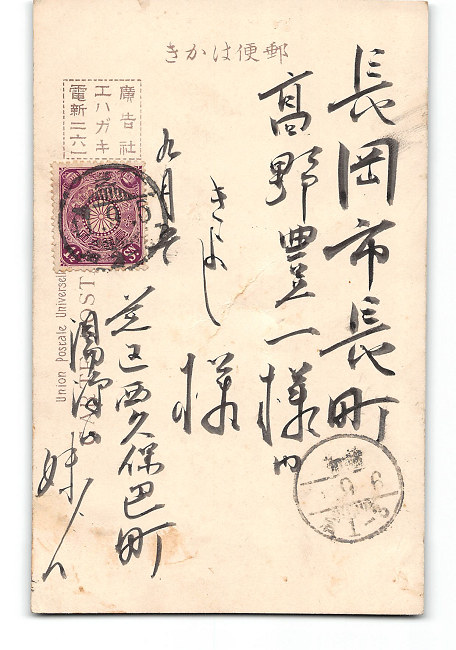 郵便はかき
長岡市長町
髙野豊一様内
きよし
様
九月五
芝区西久保巴町
妹より
廣告社
エハガキ
電新二六一
Union Postale Universelle
POST